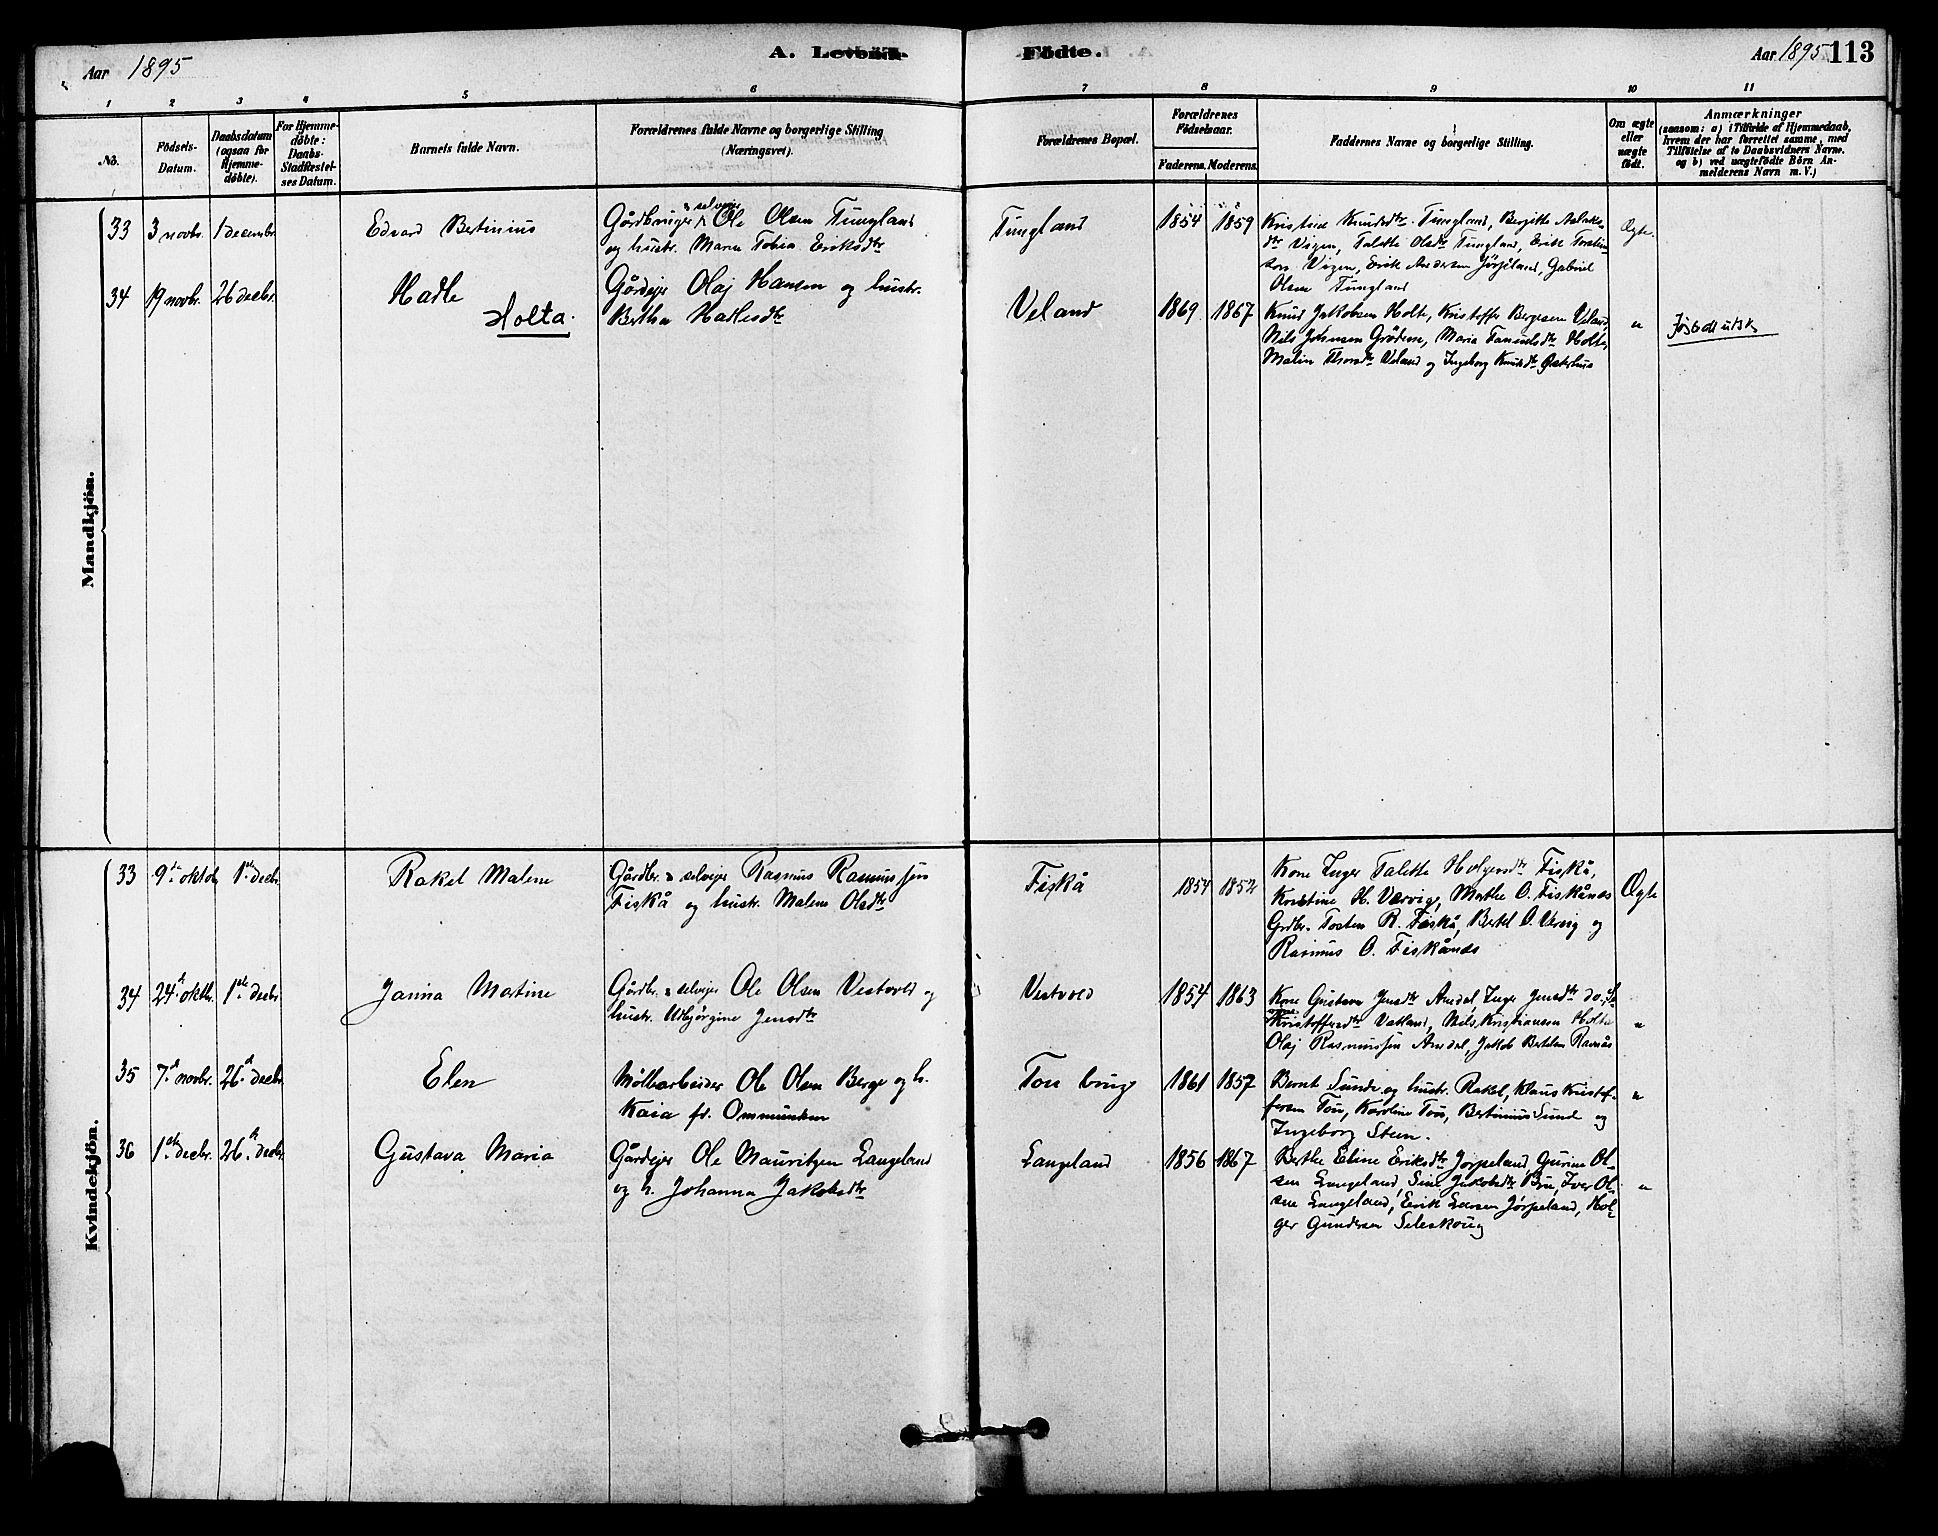 Aar 1895
A. Levende
Födte.
Aar 1895 113
1 2 3 4 5 6 7 8 9 10 11
No.
Födsels-
Datum.
Daabsdatum
(ogsaa for
Hjemme-
döbte).
For Hjemme-
döbte:
Daabs-
Stadfæstel-
ses Datum.
Barnets fulde Navn.
Forældrenes fulde Navne og borgerlige Stilling
(Næringsvei).
Forældrenes Bopæl.
Forældrenes
Födselsaar.
Faderens. Moderens.
Faddernes Navne og borgerlige Stilling.
Om ægte
eller
uægte
födt.
Anmærkninger
(saasom: a) i Tilfælde af Hjemmedaab,
hvem der har forrettet samme, med
Tilföielse af to Daabsvidners Navne,
og b) ved uægtefödte Börn An-
melderens Navn m. V.)
Mandkjön.
33 3 novbr. 1 decembr.
Edvard Bertinius
Gårdbruger & selveier Ole Olsen Tungland
og hustr. Maren Tobia Eriksdtr
Tungland
1854 1859
Kristine Knudsdtr Tungland, Bergitte Aslaks-
dtr Vigen, Talette Olsdtr Tungland, Erik Torstin-
son Vigen, Erik Andersen Jørpeland, Gabriel
Olsen Tungland
Ægte.
34 19 novbr. 26 decbr.
Hadle
Holta.
Gårdejer Olaj Hansen og hustr.
Bertha Hadlesdtr
Veland
1869 1867
Knud Jakobsen Holte, Kristoffer Bergesen Veland,
Nils Johnsen Grødem, Maria Holte,
Malin Thorsdtr Veland og Ingeborg Knudsdtr
"
Kvindekjön.
33 9de oktob. 1ste decbr.
Rakel Malene
Gårdbr. & selvejer Rasmus Rasmussen
Fiskå og hustr. Malene Olsdtr
Fiskå
1854 1852
Kone Inger Talette Holgersdtr Fiskå,
Kristine H. Værvig, Marthe O. Fiskånes
Grdbr. Tosten R. Fiskå, Bertel O. Værvig og
Rasmus O. Fiskånds
Ægte
34 24de oktbr. 1ste decbr.
Janna Martine
Gårdbr. & selvejer Ole Olsen Vestvold og
hustr. Udbjørgine Jensdtr
Vestvold
1854 1863
Kone Gustava Jensdtr Amdal, Inger Jensdtr do.,
Kristoffersdtr Vatland, Nils Kristiansen Holta
Olaj Rasmussen Amdal, Jakob Bertelsen Ramås
"
35 7de novbr. 26de decbr.
Elen
Møllearbeider Ole Olsen Berge og h.
Kaia f. Ommundsen
Tou brug
1861 1857
Bernt Sunde og hustr. Rakel, Klaus Kristof-
fersen Tou, Karoline Tou, Bertinius Sund og
Ingeborg Steen.
"
36 1ste decbr. 26de decbr.
Gustava Maria
Gårdejer Ole Mauritzen Langeland
og h. Johanna Jakobsdtr
Langeland
1856 1867
Berthe Eline Eriksdtr Jørpeland, Gurine Ol-
sen Langeland, Sine Jakobsdtr Bru, Iver Ol-
sen Langeland, Erik Larsen Jørpeland, Hol-
ger Gundersen Seleskoug
"